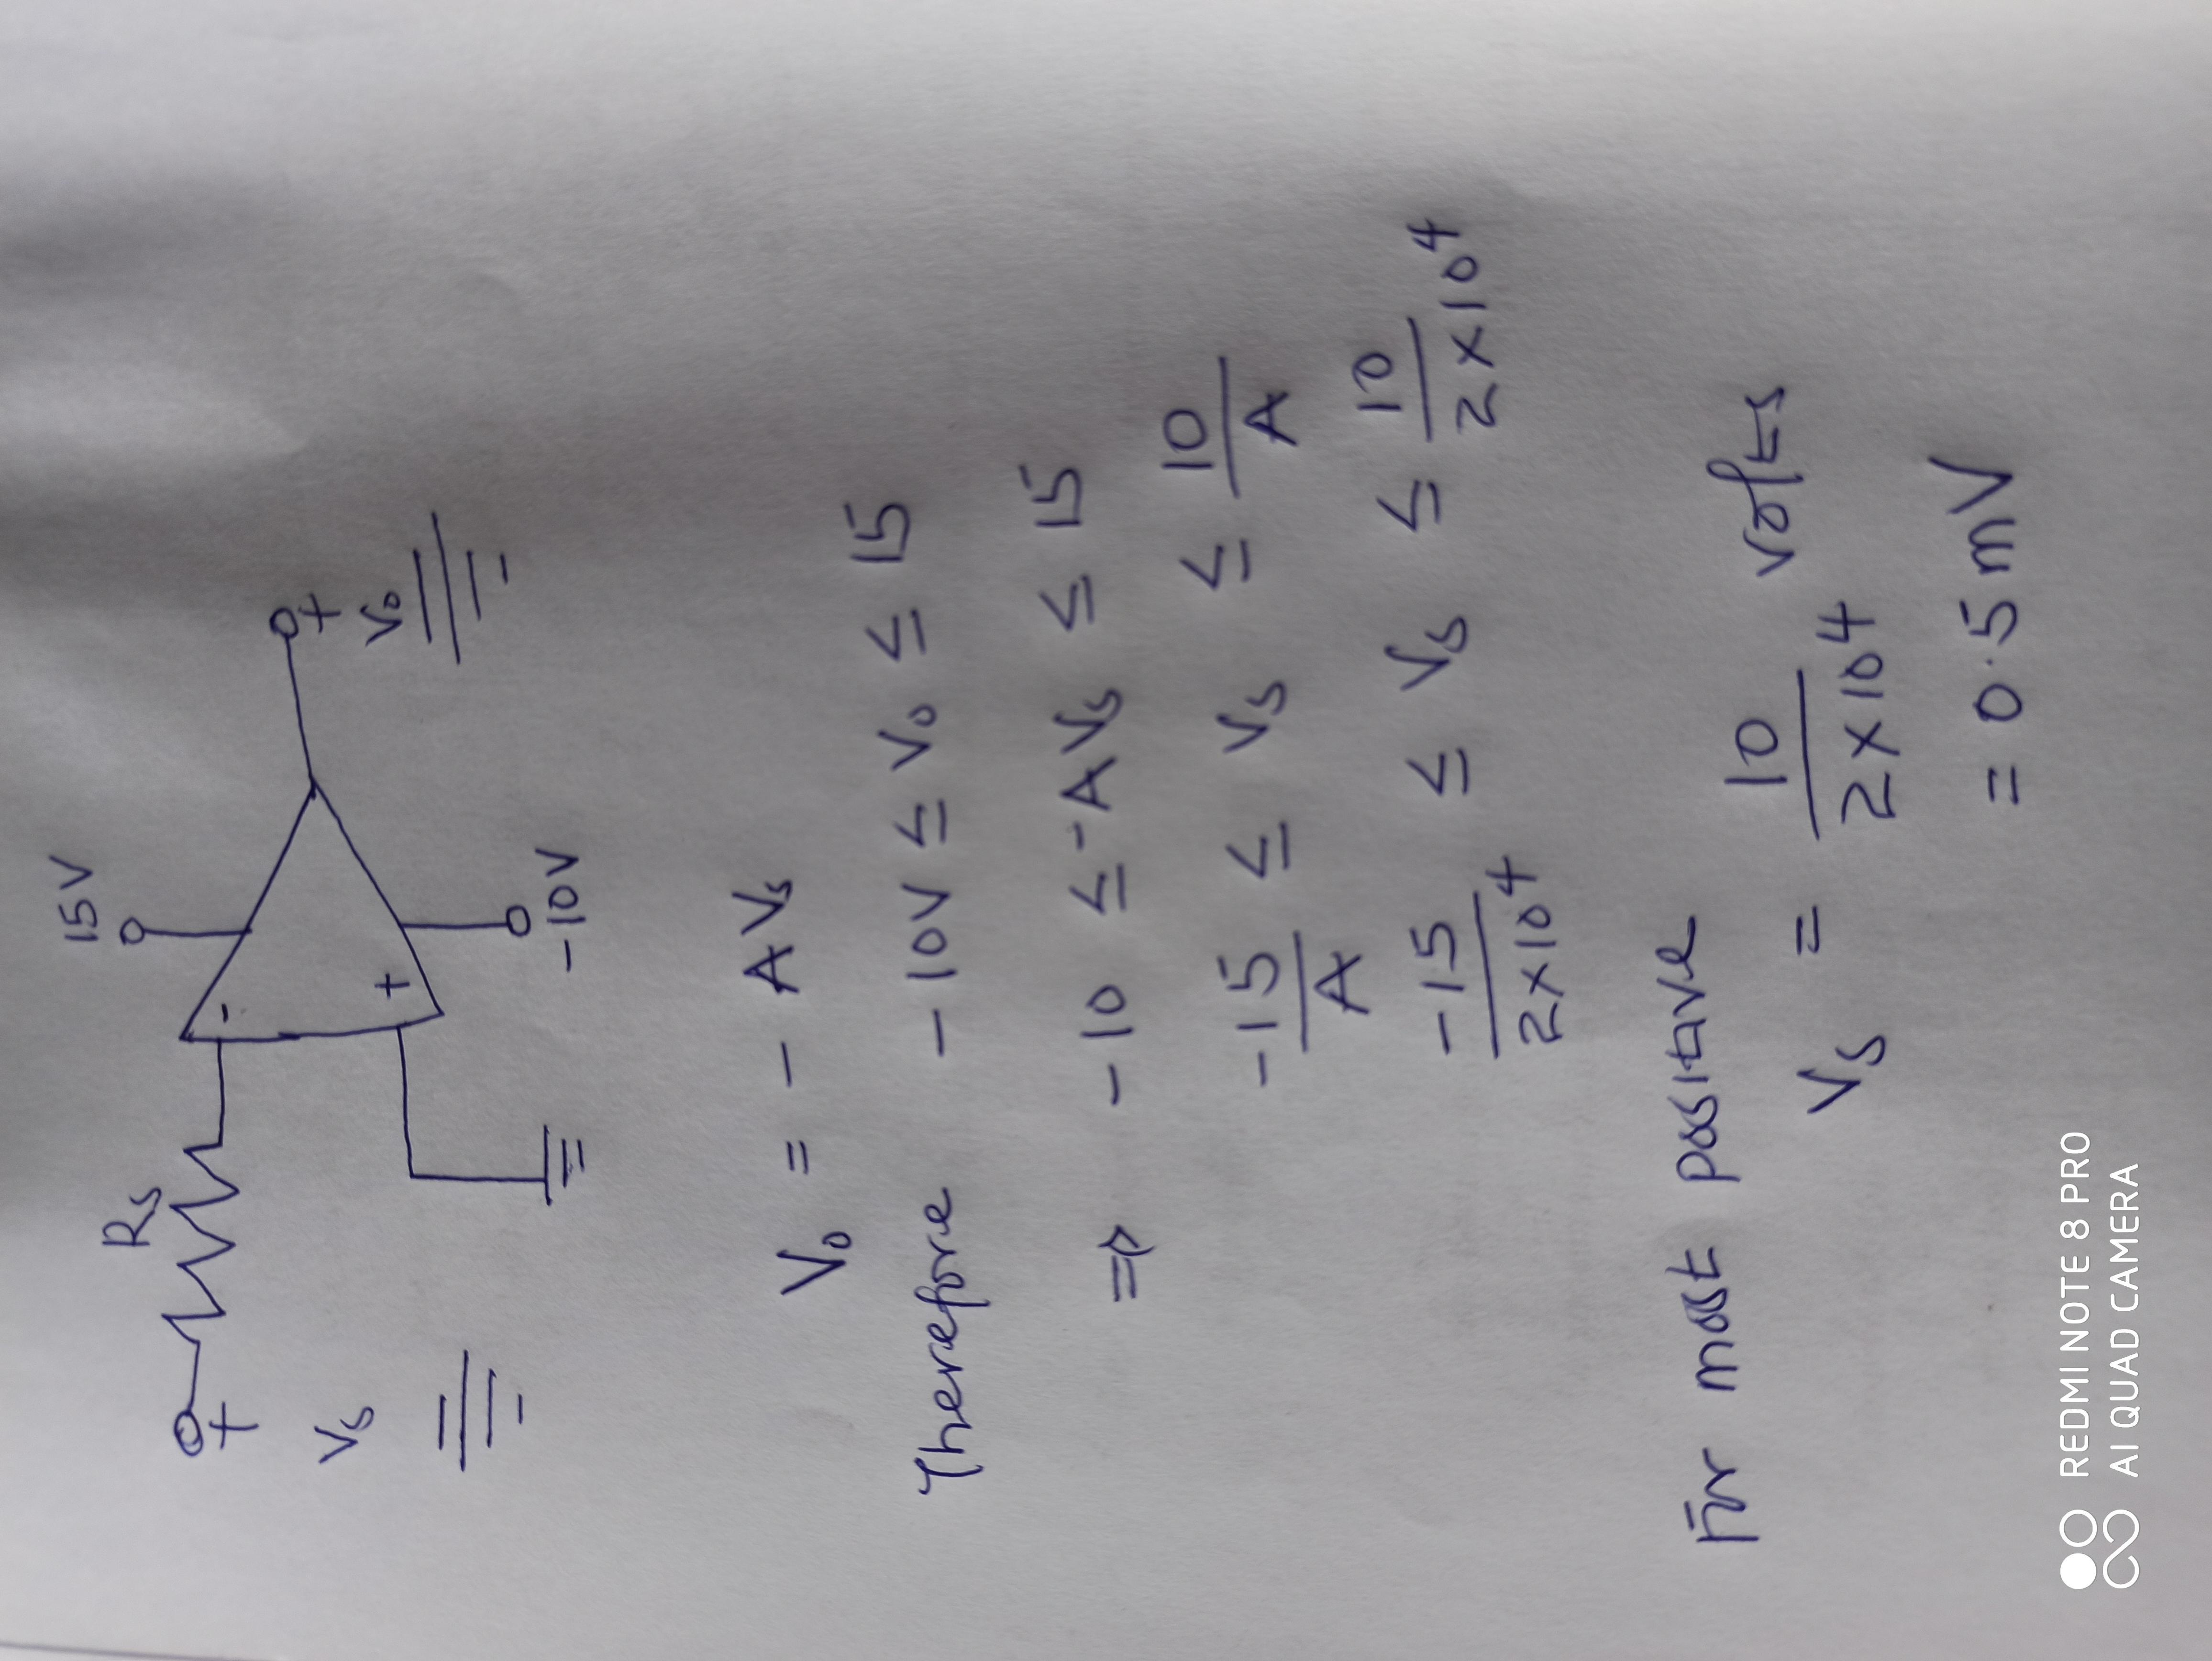 15V
Rs
-
+
+
Vs
+
Vo
-10V
Vo = - AVs
Therefore -10V ≤ Vo ≤ 15
⇒ -10 ≤ -AVs ≤ 15
-15/A ≤ Vs ≤ 10/A
-15/2×10⁴ ≤ Vs ≤ 10/2×10⁴
For most positive
Vs = 10/2×10⁴ volts
= 0.5mV
REDMI NOTE 8 PRO
AI QUAD CAMERA